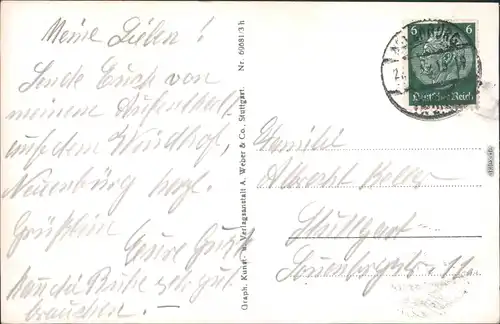 Meine Lieben!
Sende Euch von
meinem Aufenthalt
auf dem Windhof,
Neuenbürg herzl.
Grüßlein
Eure
Kann die Ruhe sehr gut
brauchen. —
Graph. Kunst- u. Verlagsanstalt A. Weber & Co., Stuttgart. Nr. 69681/3 h
6 6
Deutsches Reich
Familie
Albrecht Keller
Stuttgart